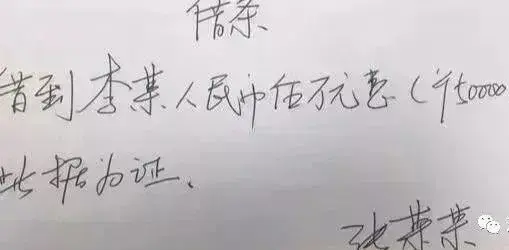 借条
借到李某人民币伍万元意(¥50000
此据为证.
张某某